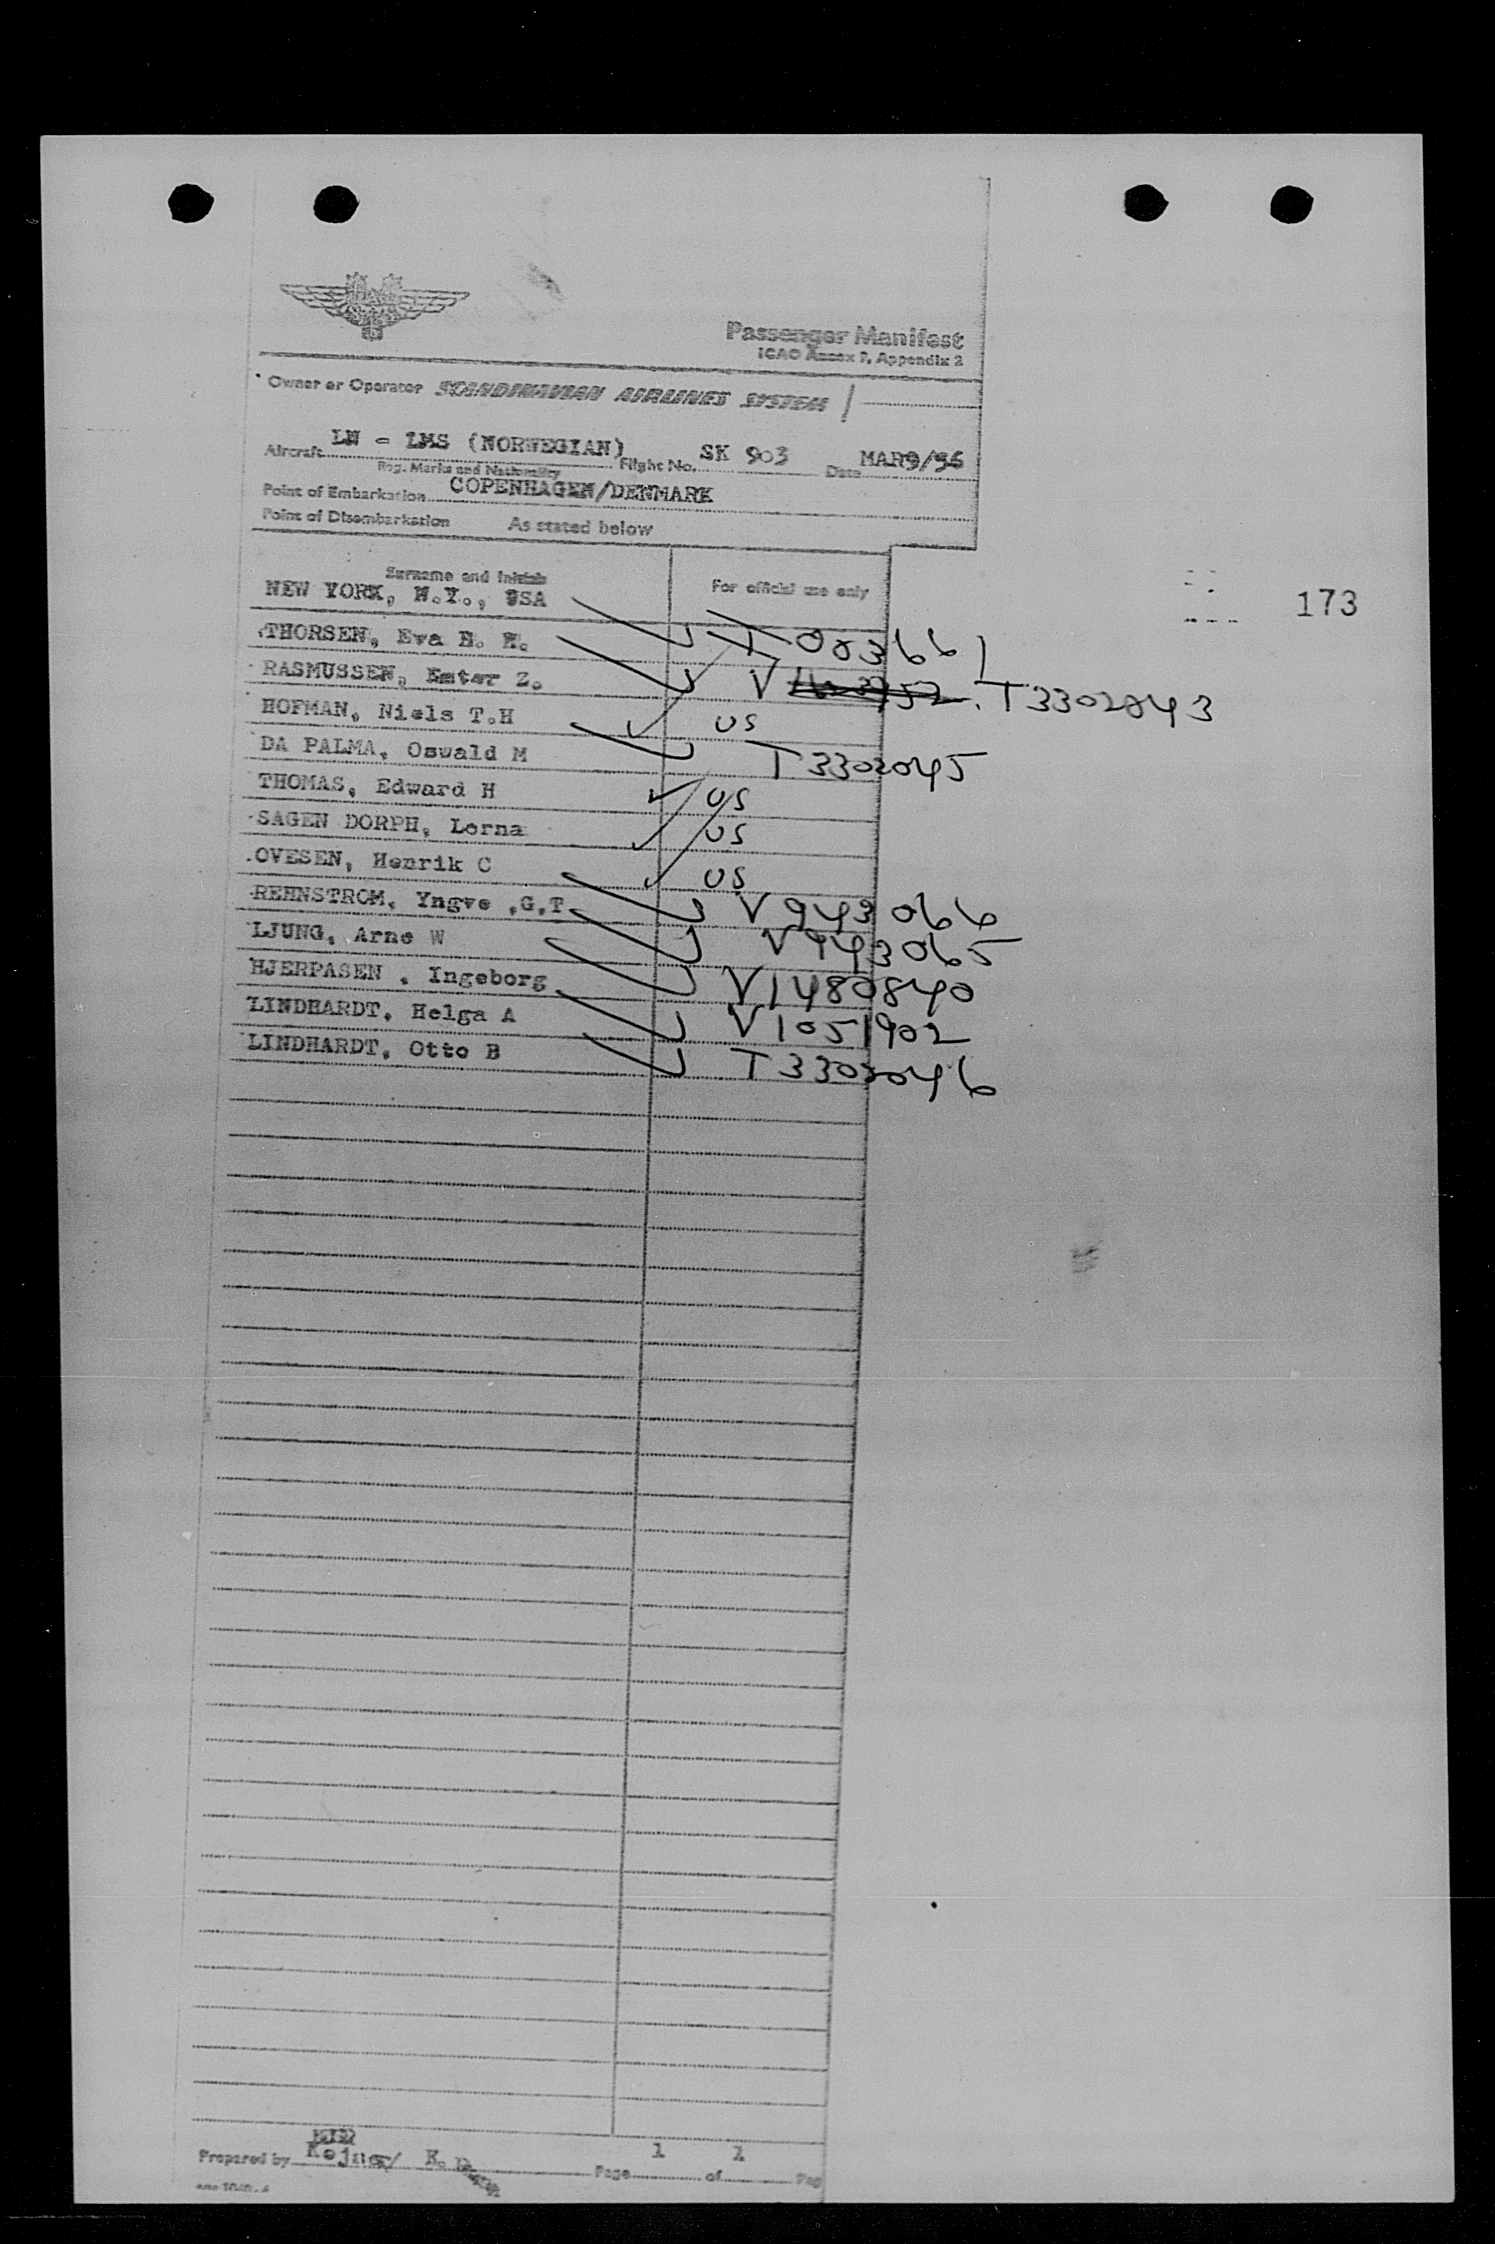 Passenger Manifest
ICAO Annex 9, Appendix 2
Owner or Operator SCANDINAVIAN AIRLINES SYSTEM
Aircraft LN - LMS (NORWEGIAN) Flight No. SK 903 Date MAR9/56
Reg. Marks and Nationality
Point of Embarkation COPENHAGEN/DENMARK
Point of Disembarkation As stated below
Surname and Initials For official use only
NEW YORK, N.Y., USA
173
THORSEN, Eva E. T 083661
RASMUSSEN, Ester Z. V T3302043
HOFMAN, Niels T.H US
DA PALMA, Oswald M T3302045
THOMAS, Edward H US
SAGEN DORPH, Lorna US
OVESEN, Henrik C US
REHNSTROM, Yngve .G.T V943066
LJUNG, Arne W V943065
HJERPASEN , Ingeborg V1480840
LINDHARDT, Helga A V1051902
LINDHARDT, Otto B T3302046
Prepared by Page 1 of 1